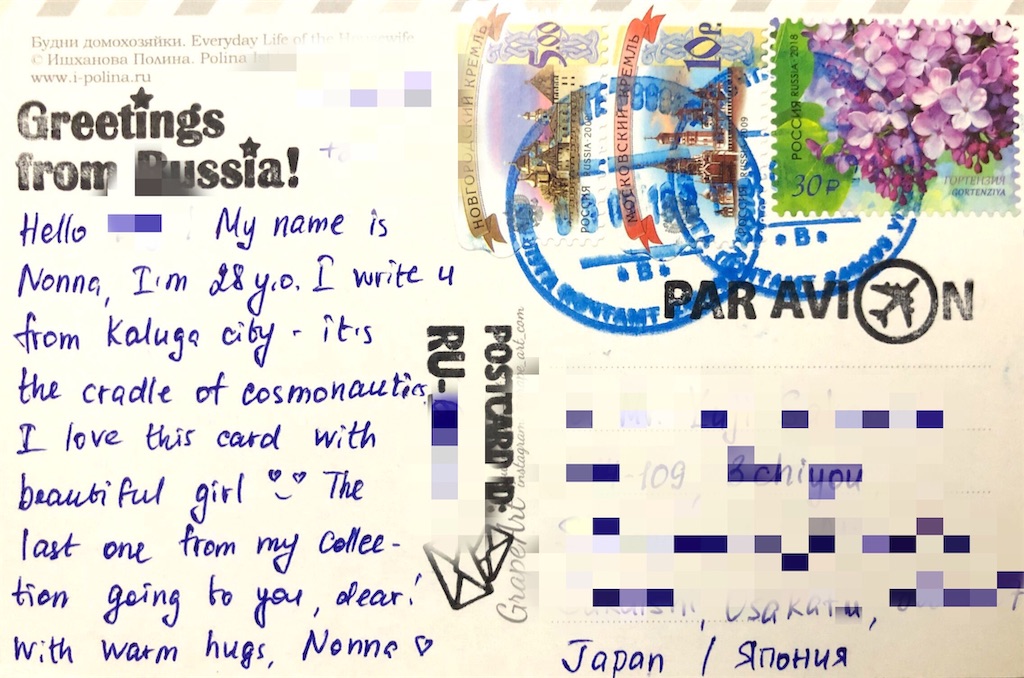 Будни домохозяйки. Everyday Life of the Housewife
© Ишханова Полина. Polina
www.i-polina.ru
Greetings
from Russia!
Hello My name is
Nonna, I'm 28 y.o. I write u
from Kaluga city - it's
the cradle of cosmonautics.
I love this card with
beautiful girl The
last one from my collec-
tion going to you, dear!
With warm hugs, Nonna ♡
POSTCARD ID:
RU-
GrapeArt
instagram
НОВГОРОДСКИЙ КРЕМЛЬ
500
РОССИЯ RUSSIA
МОСКОВСКИЙ КРЕМЛЬ
10р
РОССИЯ RUSSIA 2009
РОССИЯ RUSSIA 2018
30₽
ГОРТЕНЗИЯ
GORTENZIYA
*В*
*В*
ПОЧТАМТ
PAR AVION
-109, 3chiyou
Osakafu,
Japan / Япония